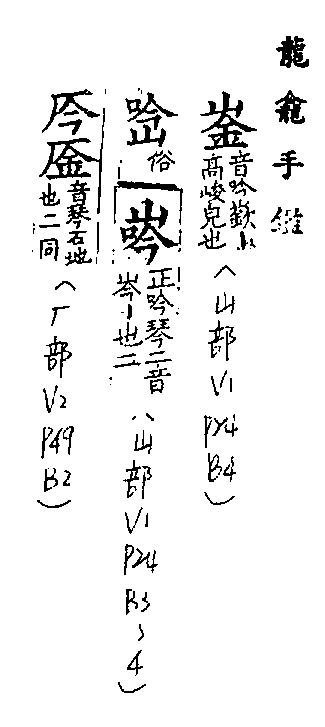 龍龕手鑑
崟音吟嶔山高峻皃也(山部V1P24B4)
㕂俗
岭正吟琴二音岑ー也二(山部V1P24B3、4)
厃𠪚音琴石地也二同(厂部V2P49B2)